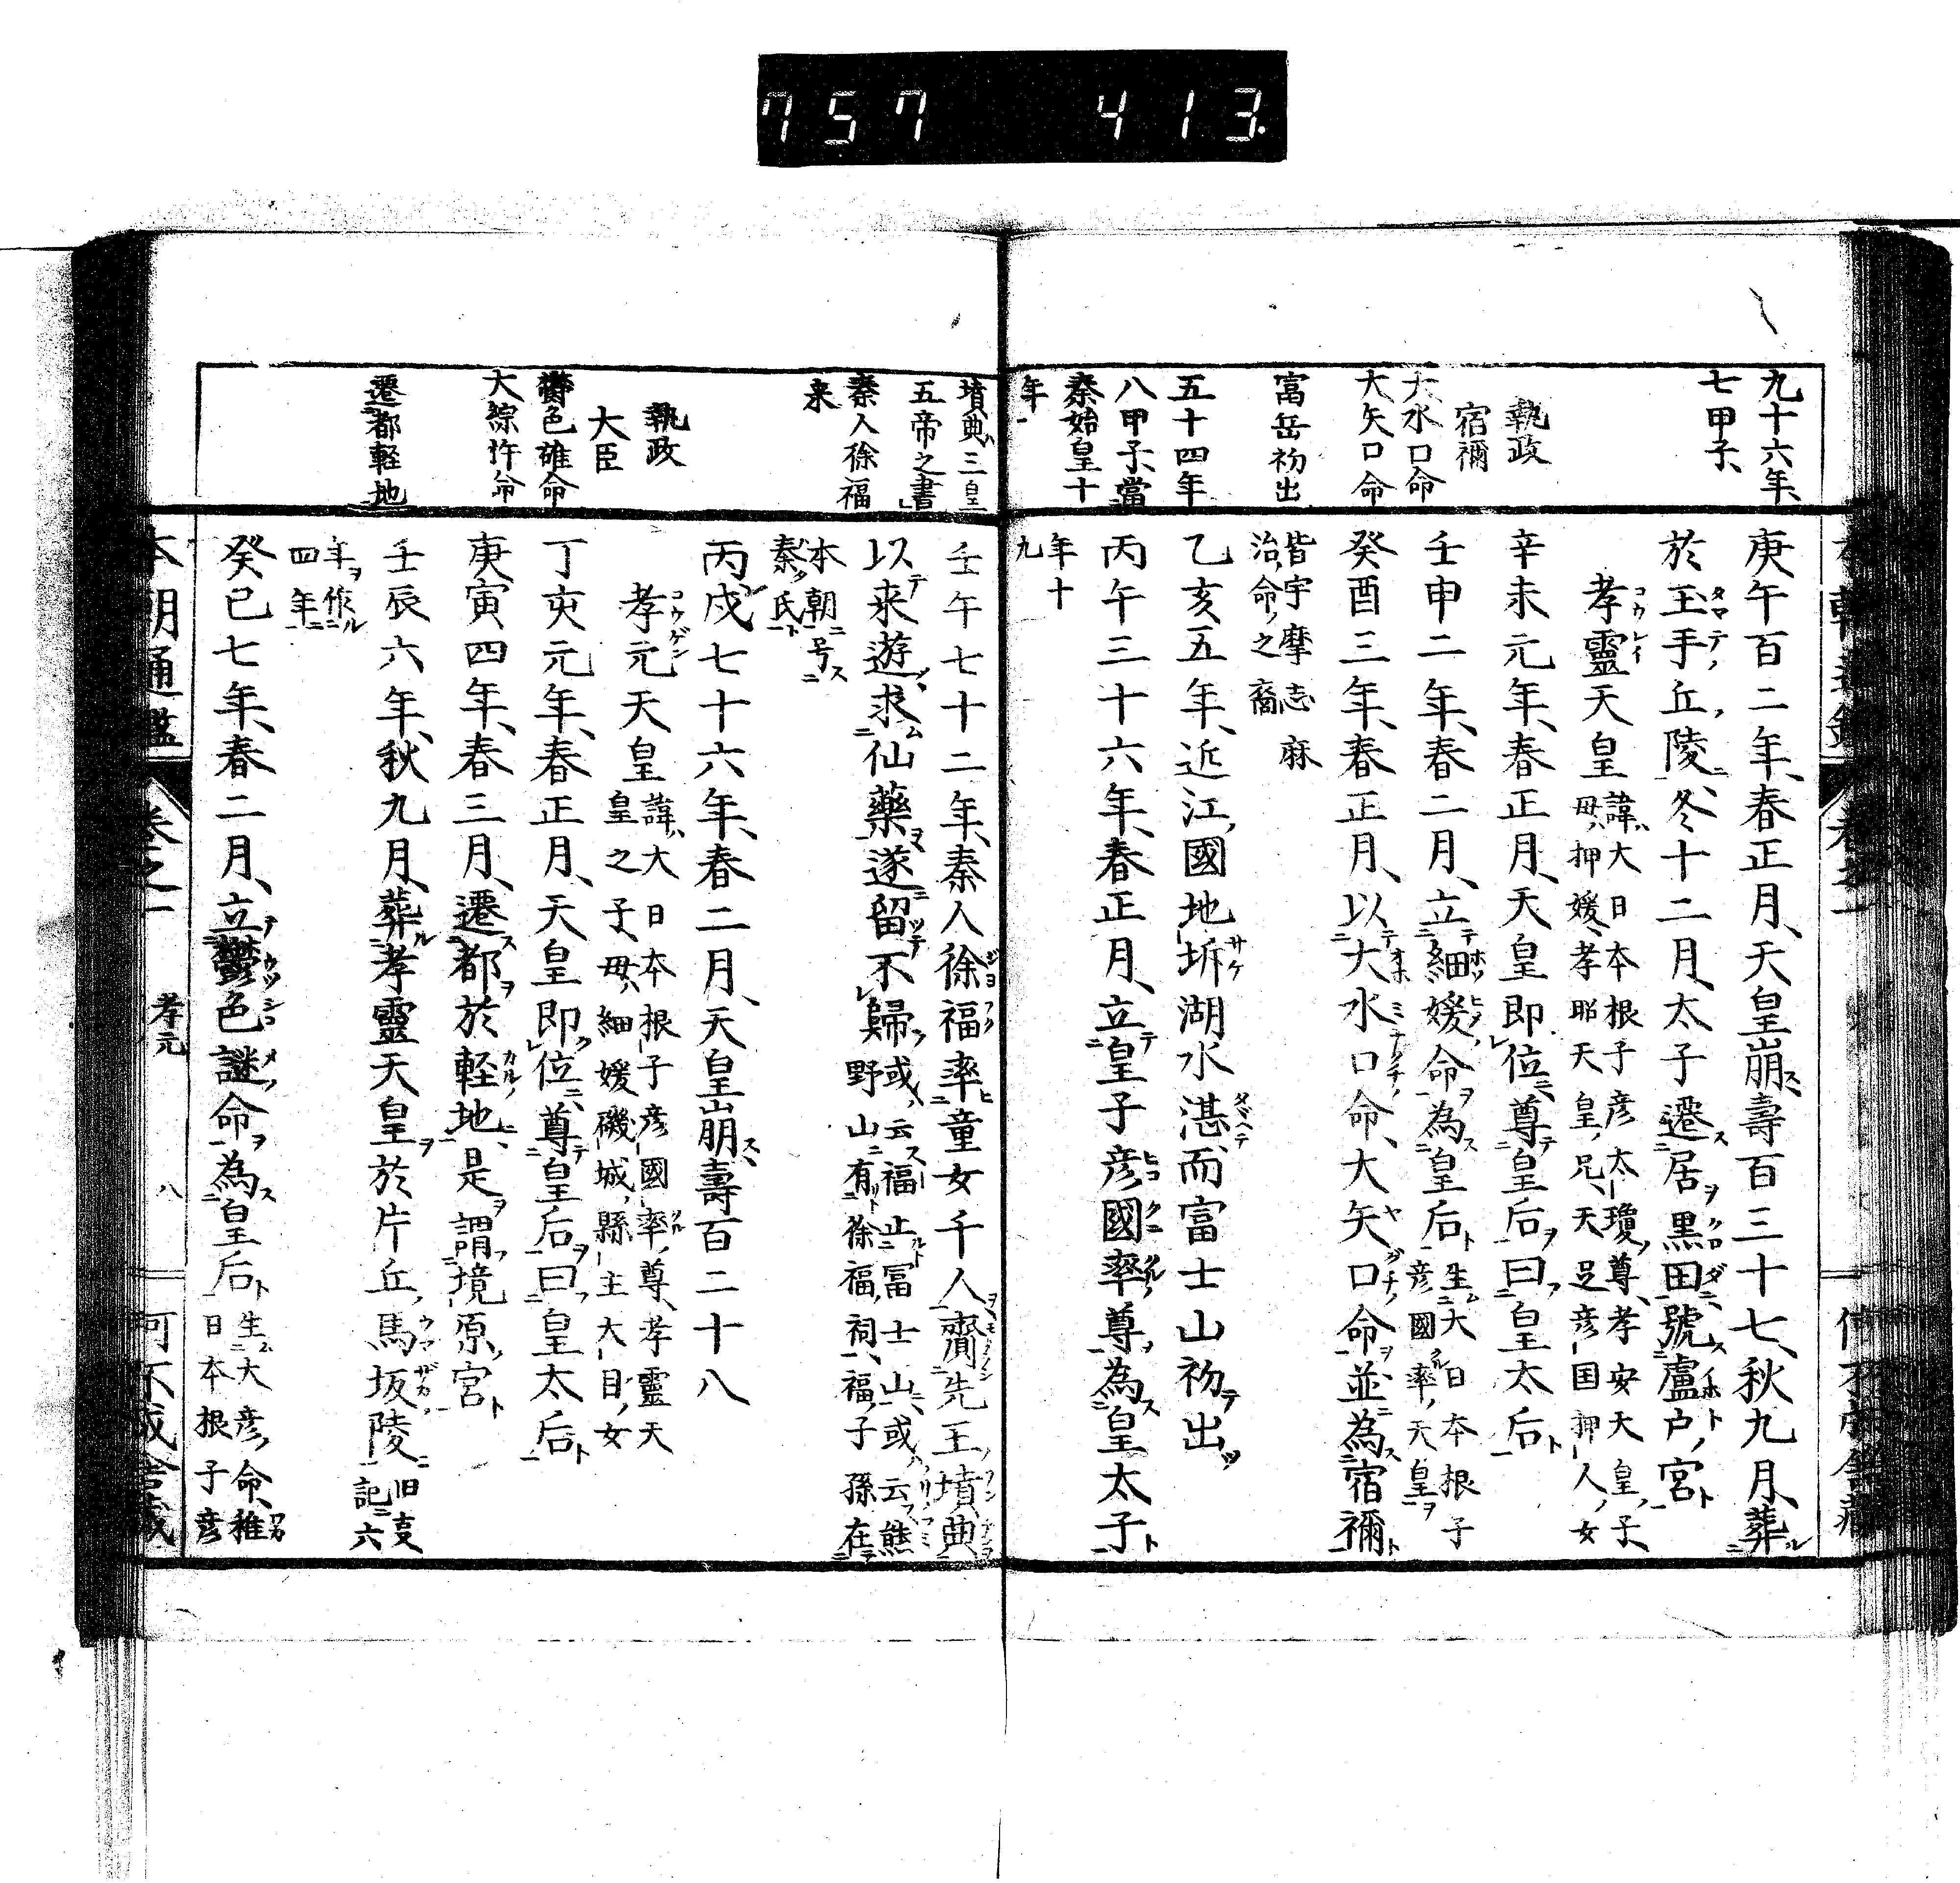 757 413
九十六年、
七甲子、
執政
宿禰
大水口命
大矢口命
富岳初出
五十四年
八甲子、當
秦始皇十
年
庚午百二年、春正月、天皇崩、壽百三十七、秋九月、葬
於玉手丘陵、冬十二月、太子遷居黒田、號盧戸宮
孝靈天皇
諱大日本根子彦太瓊尊、孝安天皇子、
母押媛、孝昭天皇兄、天足彦国押人女
辛未元年、春正月、天皇即位、尊皇后曰皇太后
壬申二年、春二月、立細媛命為皇后
生大日本根子
彦國率天皇
癸酉三年、春正月、以大水口命、大矢口命並為宿禰
皆宇摩志麻
治命之裔
乙亥五年、近江國地坼湖水湛、而富士山初出
丙午三十六年、春正月、立皇子彦國率尊為皇太子
年十
九
墳典三皇
五帝之書
秦人徐福
来
執政
大臣
鬱色雄命
大綜杵命
遷都軽地
壬午七十二年、秦人徐福率童女千人齎先王墳典
以来遊、求仙藥、遂留不歸
或云福止富士山、或云熊
野山有徐福祠、福子孫在
本朝号
秦氏
丙戌七十六年、春二月、天皇崩、壽百二十八
孝元天皇
諱大日本根子彦國率尊、孝靈天
皇之子、母細媛磯城縣主大目女
丁亥元年、春正月、天皇即位、尊皇后曰皇太后
庚寅四年、春三月、遷都於軽地、是謂境原宮
壬辰六年、秋九月、葬孝靈天皇於片丘馬坂陵
旧事
記六
年作
四年
癸巳七年、春二月、立鬱色謎命為皇后
生大彦命、稚
日本根子彦
本朝通鑑 卷之一 孝元 八